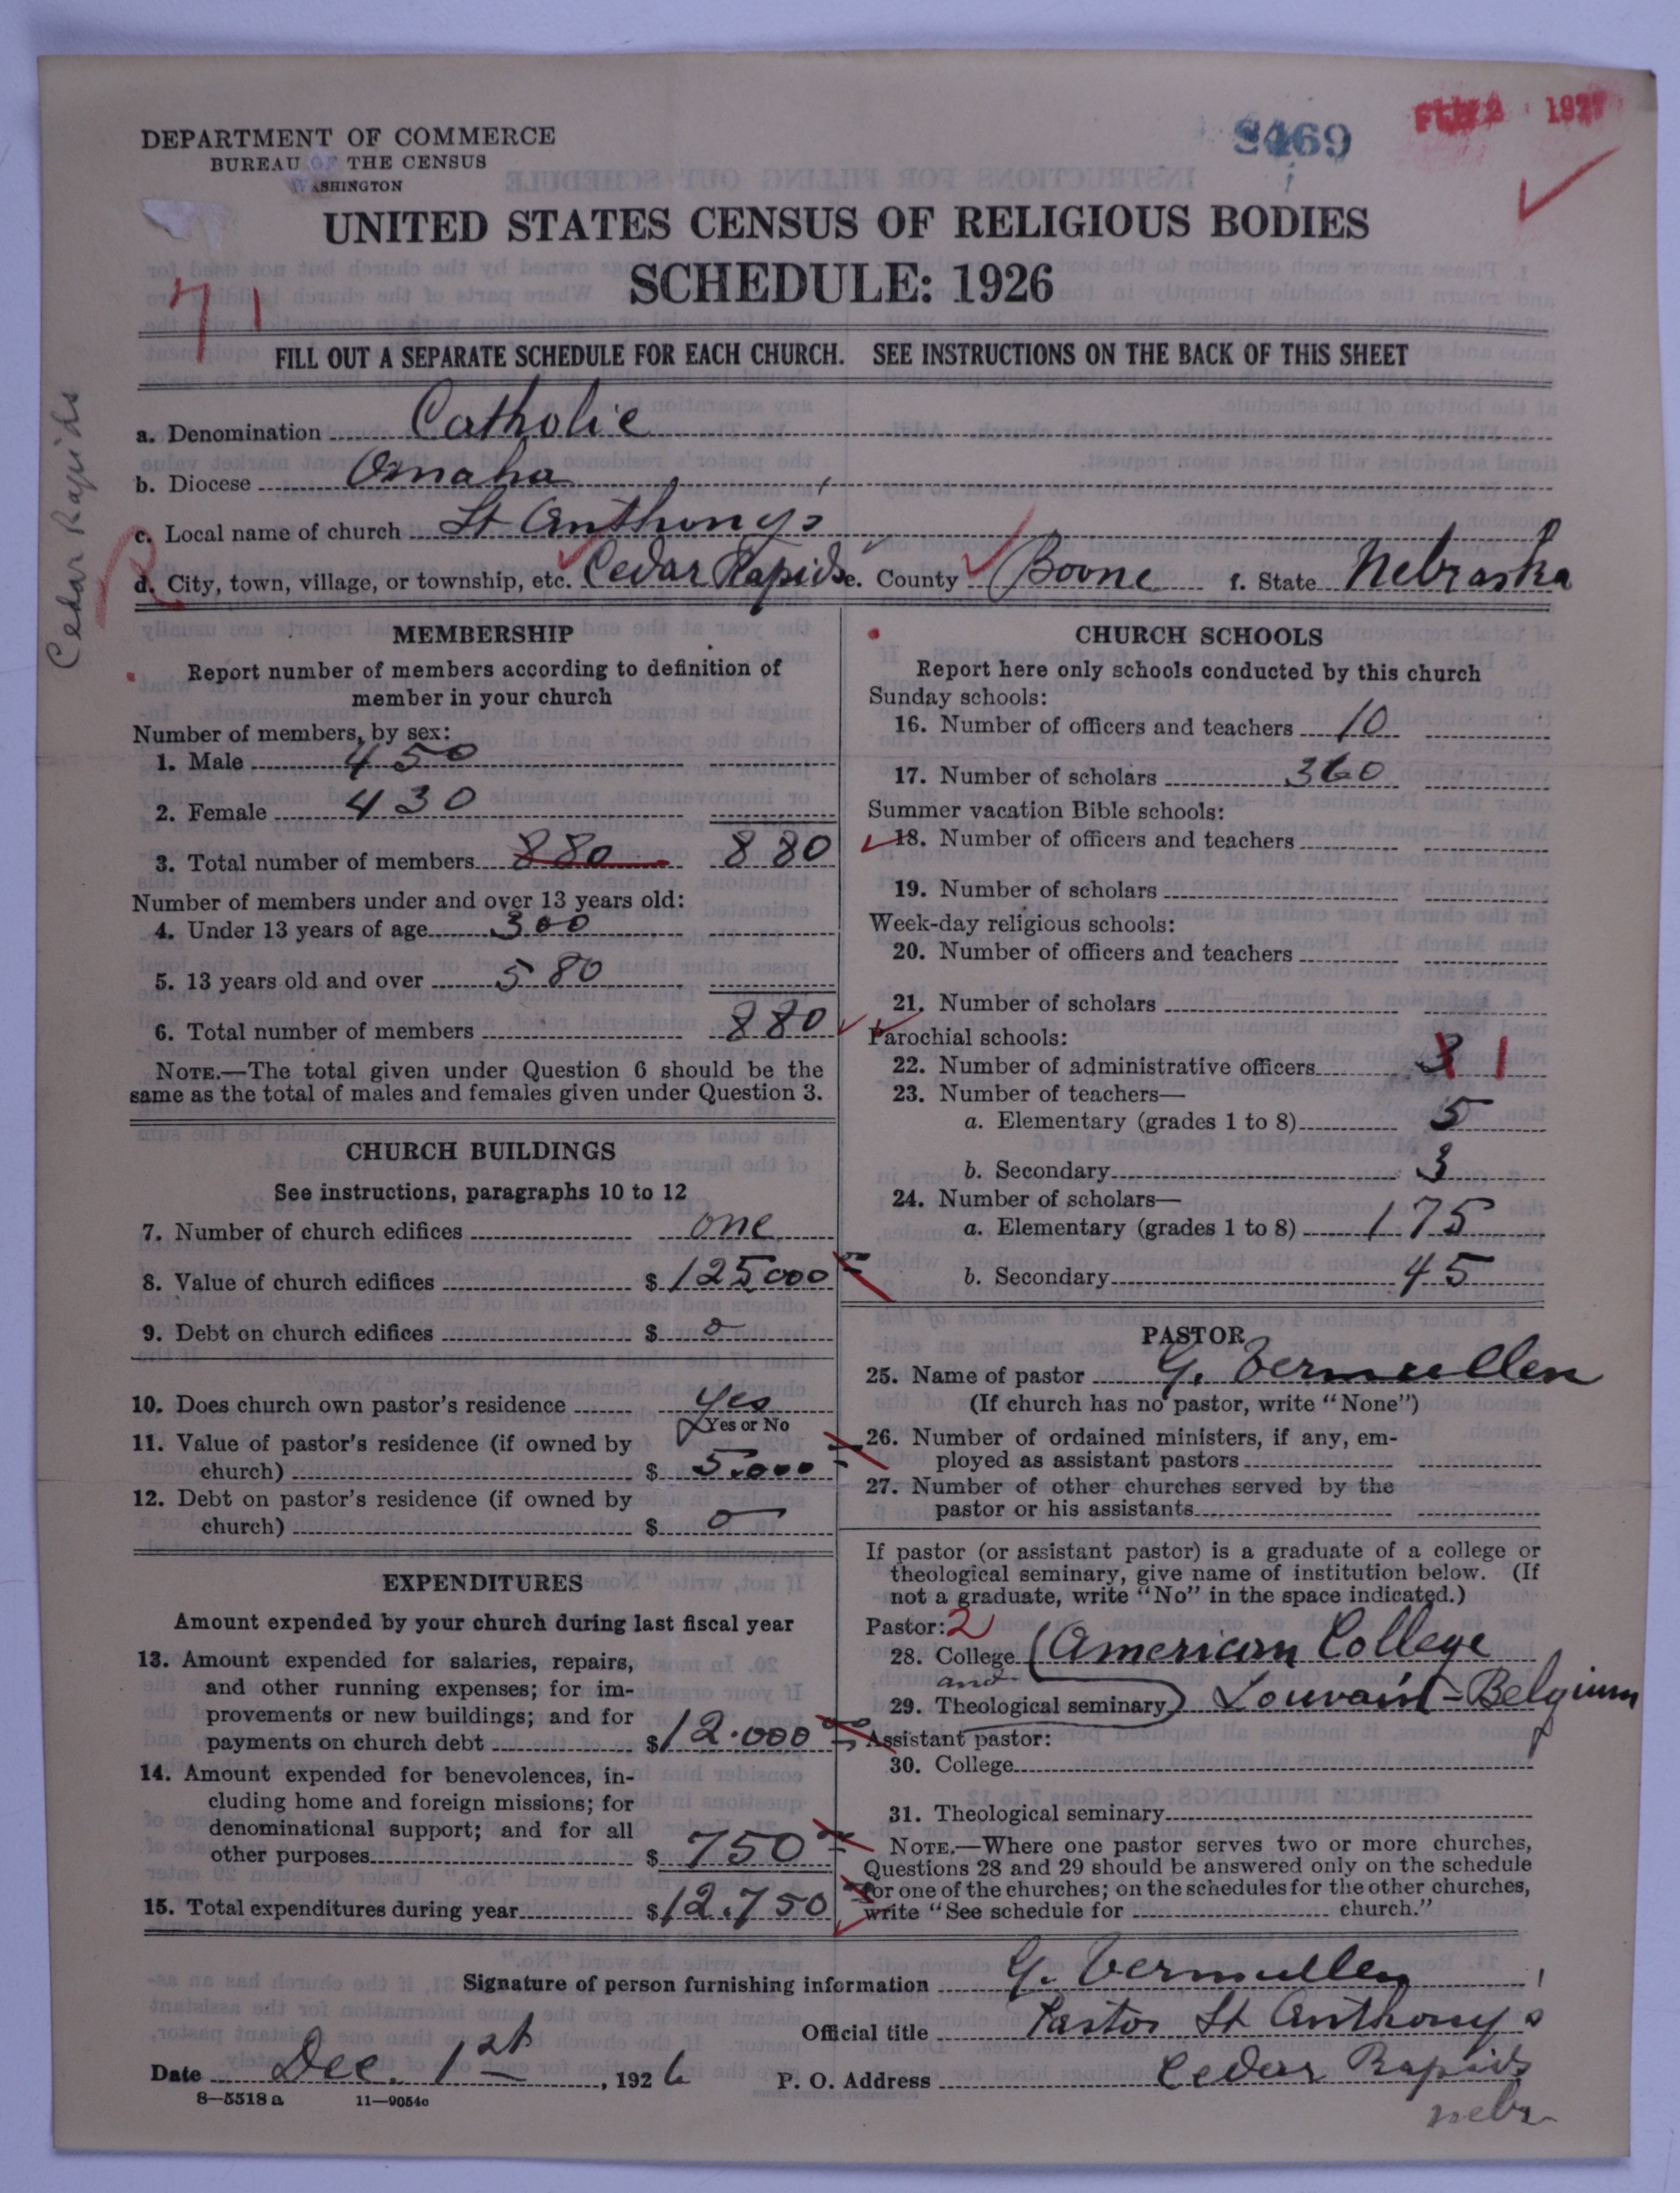 8469
1927
DEPARTMENT OF COMMERCE
BUREAU OF THE CENSUS
WASHINGTON
UNITED STATES CENSUS OF RELIGIOUS BODIES
SCHEDULE: 1926
71
FILL OUT A SEPARATE SCHEDULE FOR EACH CHURCH. SEE INSTRUCTIONS ON THE BACK OF THIS SHEET
Cedar Rapids
a. Denomination Catholic
b. Diocese Omaha
c. Local name of church St Anthonys
d. City, town, village, or township, etc. Cedar Rapids e. County Boone f. State Nebraska
MEMBERSHIP
Report number of members according to definition of
member in your church
Number of members, by sex:
1. Male 450
2. Female 430
3. Total number of members 880 880
Number of members under and over 13 years old:
4. Under 13 years of age 300
5. 13 years old and over 580
6. Total number of members 880
NOTE.—The total given under Question 6 should be the
same as the total of males and females given under Question 3.
CHURCH BUILDINGS
See instructions, paragraphs 10 to 12
7. Number of church edifices one
8. Value of church edifices $ 125000
9. Debt on church edifices $ 0
10. Does church own pastor's residence yes
Yes or No
11. Value of pastor's residence (if owned by
church) $ 5.000
12. Debt on pastor's residence (if owned by
church) $ 0
EXPENDITURES
Amount expended by your church during last fiscal year
13. Amount expended for salaries, repairs,
and other running expenses; for im-
provements or new buildings; and for
payments on church debt $ 12.000
14. Amount expended for benevolences, in-
cluding home and foreign missions; for
denominational support; and for all
other purposes $ 750
15. Total expenditures during year $ 12.750
CHURCH SCHOOLS
Report here only schools conducted by this church
Sunday schools:
16. Number of officers and teachers 10
17. Number of scholars 360
Summer vacation Bible schools:
18. Number of officers and teachers
19. Number of scholars
Week-day religious schools:
20. Number of officers and teachers
21. Number of scholars
Parochial schools:
22. Number of administrative officers 3 1
23. Number of teachers—
a. Elementary (grades 1 to 8) 5
b. Secondary 3
24. Number of scholars—
a. Elementary (grades 1 to 8) 175
b. Secondary 45
PASTOR
25. Name of pastor G. Vermuellen
(If church has no pastor, write "None")
26. Number of ordained ministers, if any, em-
ployed as assistant pastors
27. Number of other churches served by the
pastor or his assistants
If pastor (or assistant pastor) is a graduate of a college or
theological seminary, give name of institution below. (If
not a graduate, write "No" in the space indicated.)
Pastor: 2
28. College American College
and
29. Theological seminary Louvain - Belgium
Assistant pastor:
30. College
31. Theological seminary
NOTE.—Where one pastor serves two or more churches,
Questions 28 and 29 should be answered only on the schedule
for one of the churches; on the schedules for the other churches,
write "See schedule for church."
Signature of person furnishing information G. Vermuellen
Official title Pastor St Anthonys
Date Dec. 1st, 1926 P. O. Address Cedar Rapids
Nebr
8—5518a 11—9054c